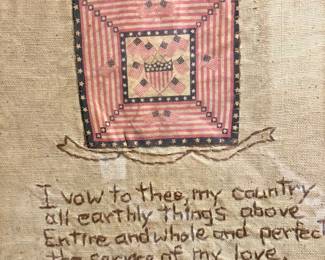 I vow to thee, my country
all earthly things above
Entire and whole and perfect
the service of my love.